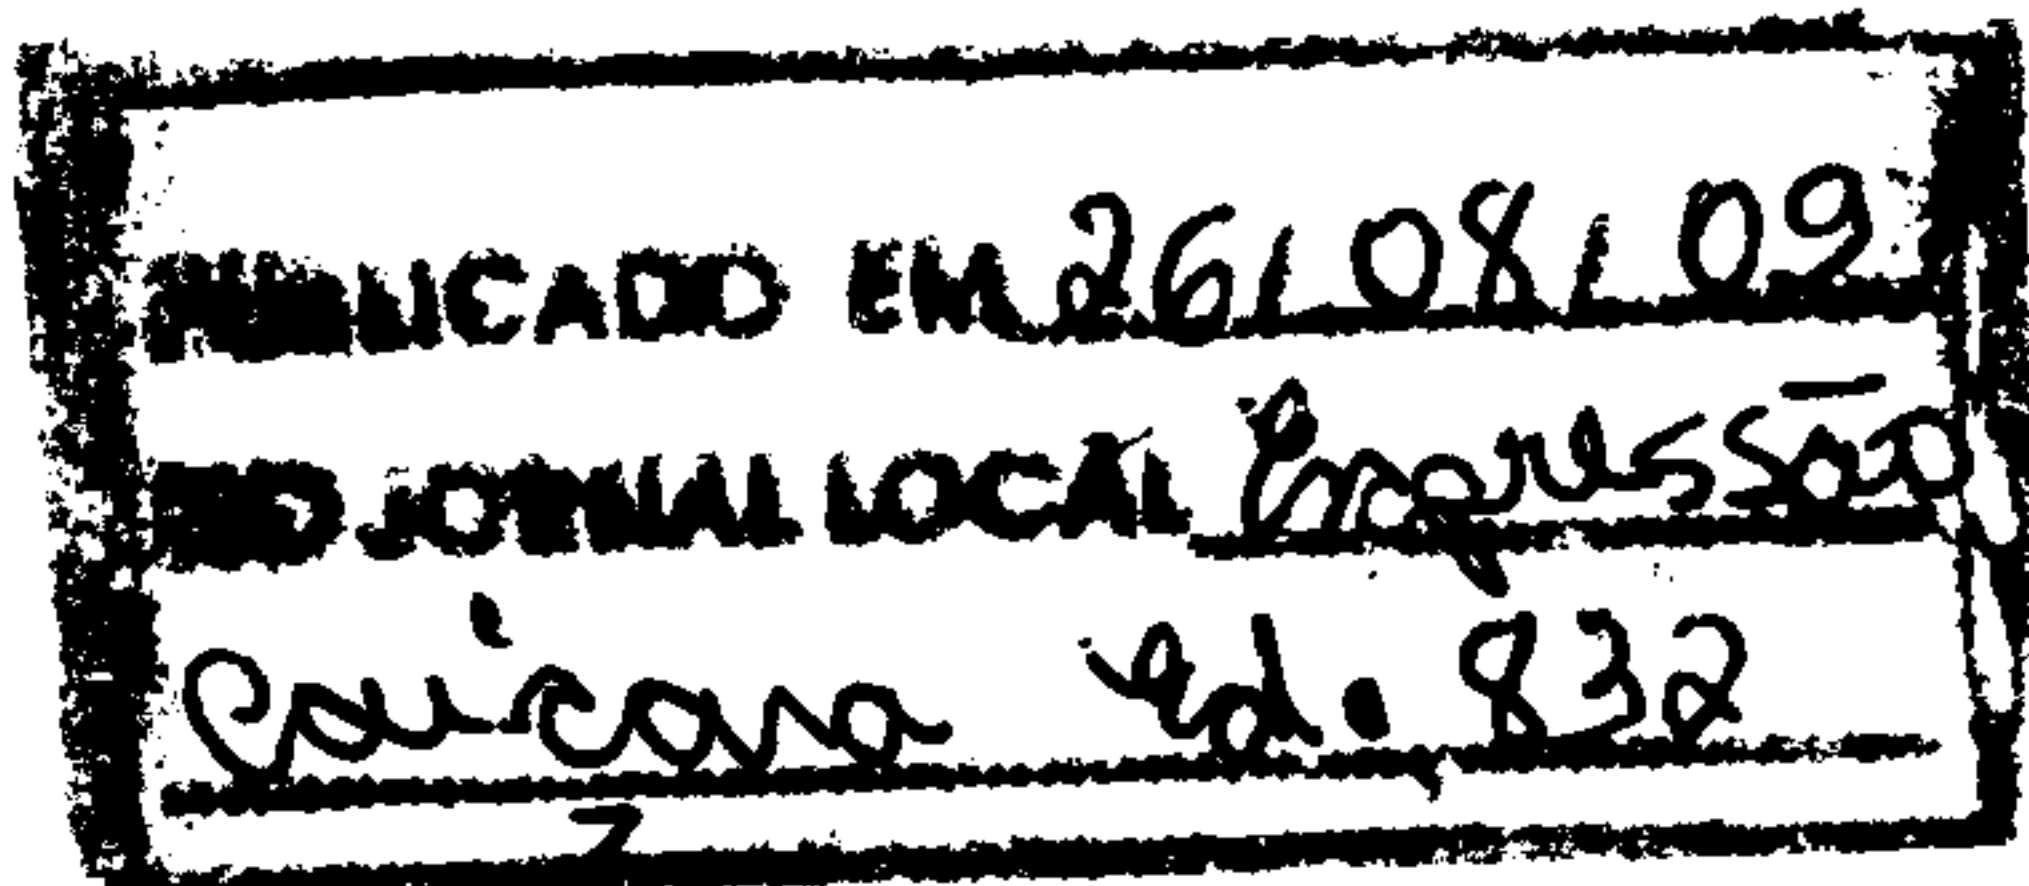 PUBLICADO EM 26/08/09
NO JORNAL LOCAL Expressão
Caiçara Ed. 832